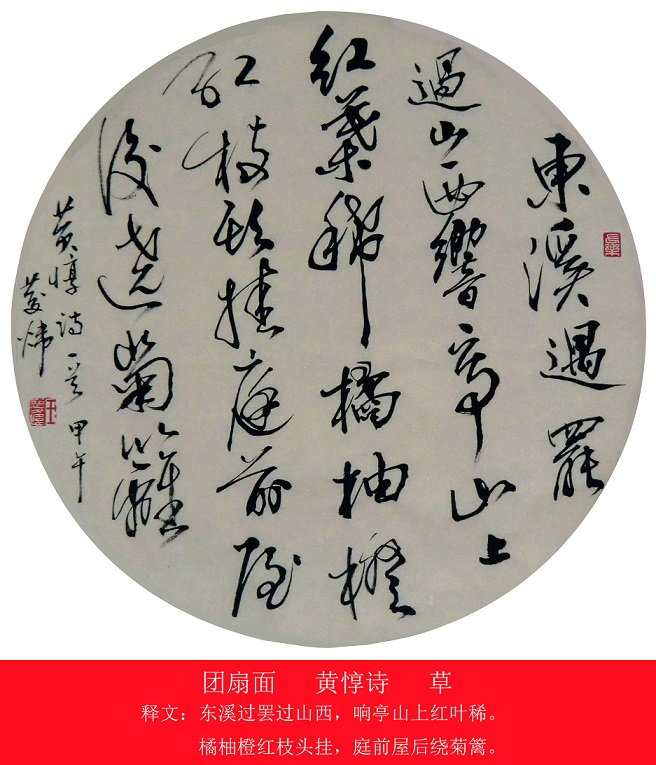 東溪遇罷
過山西響亭山上
紅葉稀橘柚橙
紅枝頭挂庭前屋
後遶菊籬
黄惇詩一首 甲午
团扇面 黄惇诗 草
释文：东溪过罢过山西，响亭山上红叶稀。
橘柚橙红枝头挂，庭前屋后绕菊篱。